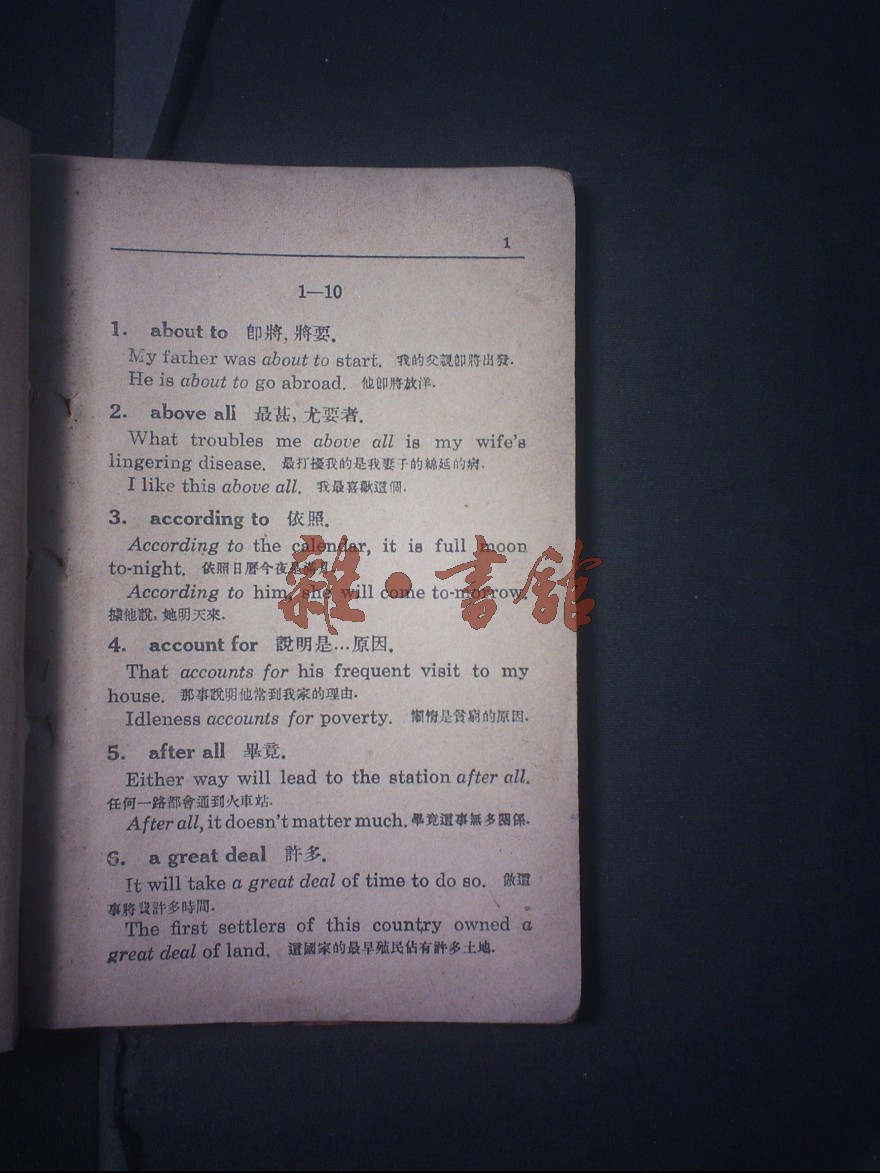 1
1—10
1. about to 卽將, 將要.
My father was about to start. 我的父親卽將出發.
He is about to go abroad. 他卽將放洋.
2. above all 最甚, 尤要者.
What troubles me above all is my wife's
lingering disease. 最打擾我的是我妻子的綿延的病.
I like this above all. 我最喜歡這個.
3. according to 依照.
According to the calendar, it is full moon
to-night. 依照日曆今夜是滿月
According to him, she will come to-morrow.
據他說, 她明天來.
4. account for 說明是…原因.
That accounts for his frequent visit to my
house. 那事說明他常到我家的理由.
Idleness accounts for poverty. 懶惰是貧窮的原因.
5. after all 畢竟.
Either way will lead to the station after all.
任何一路都會通到火車站.
After all, it doesn't matter much. 畢竟這事無多關係.
6. a great deal 許多.
It will take a great deal of time to do so. 做這
事將費許多時間.
The first settlers of this country owned a
great deal of land. 這國家的最早殖民佔有許多土地.
雜·書館